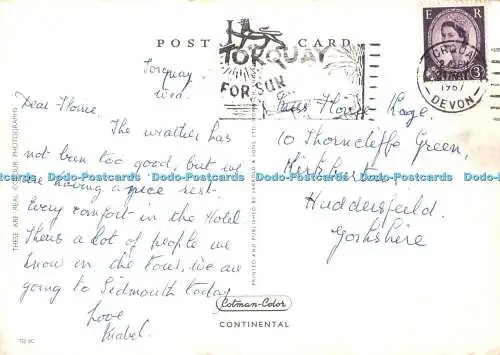 POST CARD
TORQUAY
FOR SUN
E R
3D
TORQUAY
1967
DEVON
Torquay.
Wed.
Dear Florrie.
The weather has
not been too good, but we
are having a nice rest.
Every comfort in the Hotel.
There's a lot of people we
know in the Tour, we are
going to Sidmouth today
Love
Mabel.
Miss Florrie
10 Thorncliffe Green,
Kirkburton,
Huddersfield,
Yorkshire
THESE ARE REAL COLOUR PHOTOGRAPHS
PRINTED AND PUBLISHED BY & SONS LTD.
Cotman-Color
CONTINENTAL
Dodo-Postcards Dodo-Postcards Dodo-Postcards Dodo-Postcards